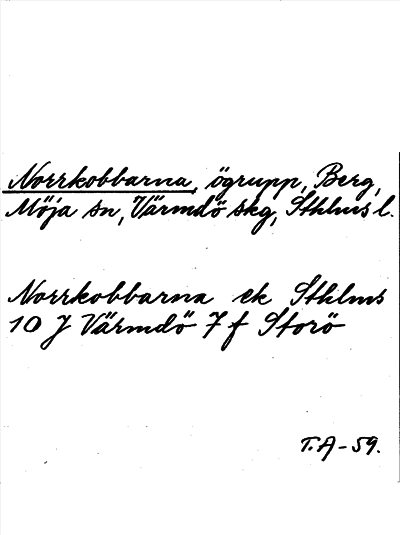 Norrkobbarna, ögrupp, Berg,
Möja sn, Värmdö skg, Sthlms l.
Norrkobbarna ek Sthlms
10 J Värmdö 7 f Storö
T.A-59.